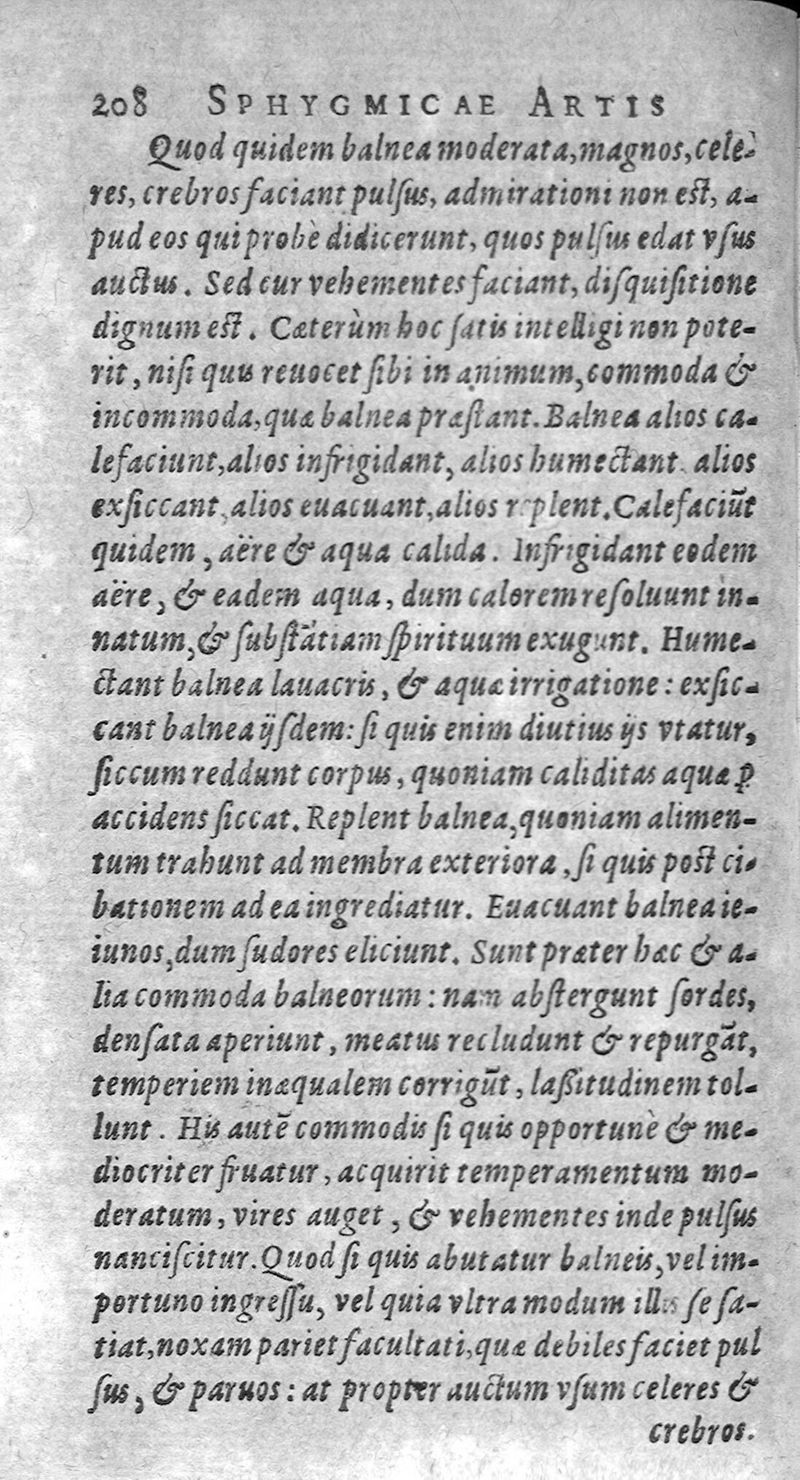 208 SPHYGMICAE ARTIS
Quod quidem balnea moderata, magnos, cele-
res, crebros faciant pulſus, admirationi non eſt, a-
pud eos qui probè didicerunt, quos pulſus edat vſus
auctus. Sed cur vehementes faciant, diſquiſitione
dignum eſt. Cæterùm hoc ſatis intelligi non pote-
rit, niſi quis reuocet ſibi in animum, commoda &
incommoda, quæ balnea præſtant. Balnea alios ca-
lefaciunt, alios infrigidant, alios humectant alios
exſiccant, alios euacuant, alios replent. Calefaciũt
quidem, aëre & aqua calida. Infrigidant eodem
aëre, & eadem aqua, dum calorem reſoluunt in-
natum, & ſubſtãtiam ſpirituum exugunt. Hume-
ctant balnea lauacris, & aquæ irrigatione: exſic-
cant balnea ijſdem: ſi quis enim diutius ijs vtatur,
ſiccum reddunt corpus, quoniam caliditas aquæ ꝑ
accidens ſiccat. Replent balnea, quoniam alimen-
tum trahunt ad membra exteriora, ſi quis poſt ci-
bationem ad ea ingrediatur. Euacuant balnea ie-
iunos, dum ſudores eliciunt. Sunt præter hæc & a-
lia commoda balneorum: nam abſtergunt ſordes,
denſata aperiunt, meatus recludunt & repurgãt,
temperiem inæqualem corrigũt, laſſitudinem tol-
lunt. His autẽ commodis ſi quis opportunè & me-
diocriter fruatur, acquirit temperamentum mo-
deratum, vires auget, & vehementes inde pulſus
nanciſcitur. Quod ſi quis abutatur balneis, vel im-
portuno ingreſſu, vel quia vltra modum illis ſe ſa-
tiat, noxam pariet facultati, quæ debiles faciet pul
ſus, & paruos: at propter auctum vſum celeres &
crebros.